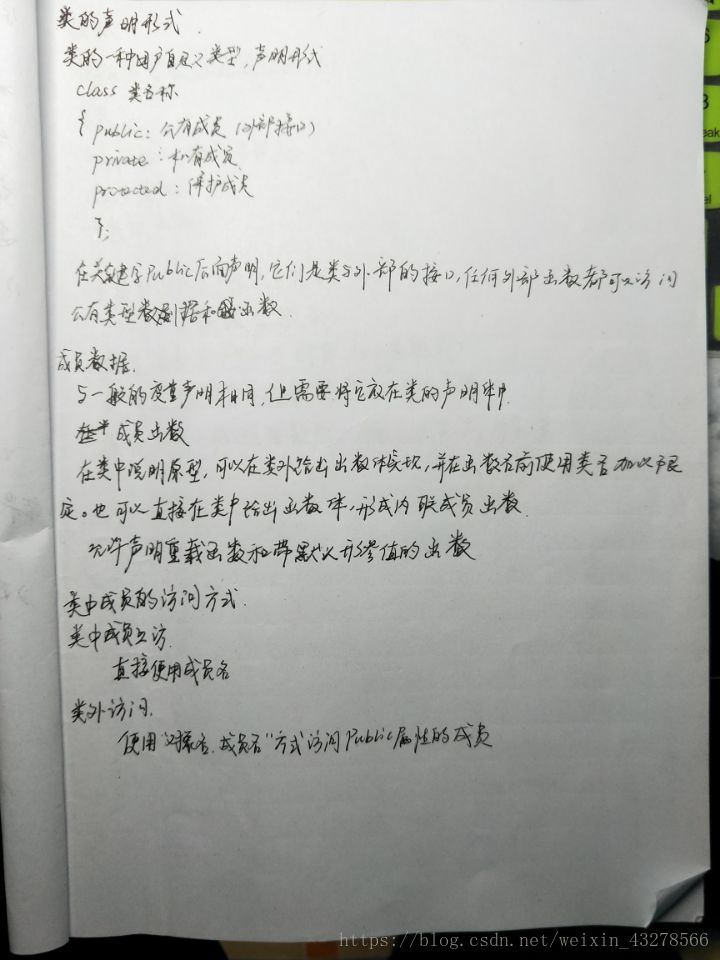 类的声明形式.
类的一种用户自定义类型,声明形式
class 类名称
{ public: 公有成员 (外部接口)
private: 私有成员
protected: 保护成员
};
在关键字Public后面声明,它们是类与外部的接口,任何外部函数都可以访问
公有类型数据和函数.
成员数据.
与一般的变量声明相同,但需要将它放在类的声明体中.
成员函数
在类中说明原型,可以在类外给出函数体实现,并在函数名前使用类名加以限
定。也可以直接在类中给出函数体,形成内联成员函数.
允许声明重载函数和带默认形参值的函数
类中成员的访问方式.
类中成员互访.
直接使用成员名
类外访问.
使用"对象名.成员名"方式访问Public属性的成员
https://blog.csdn.net/weixin_43278566